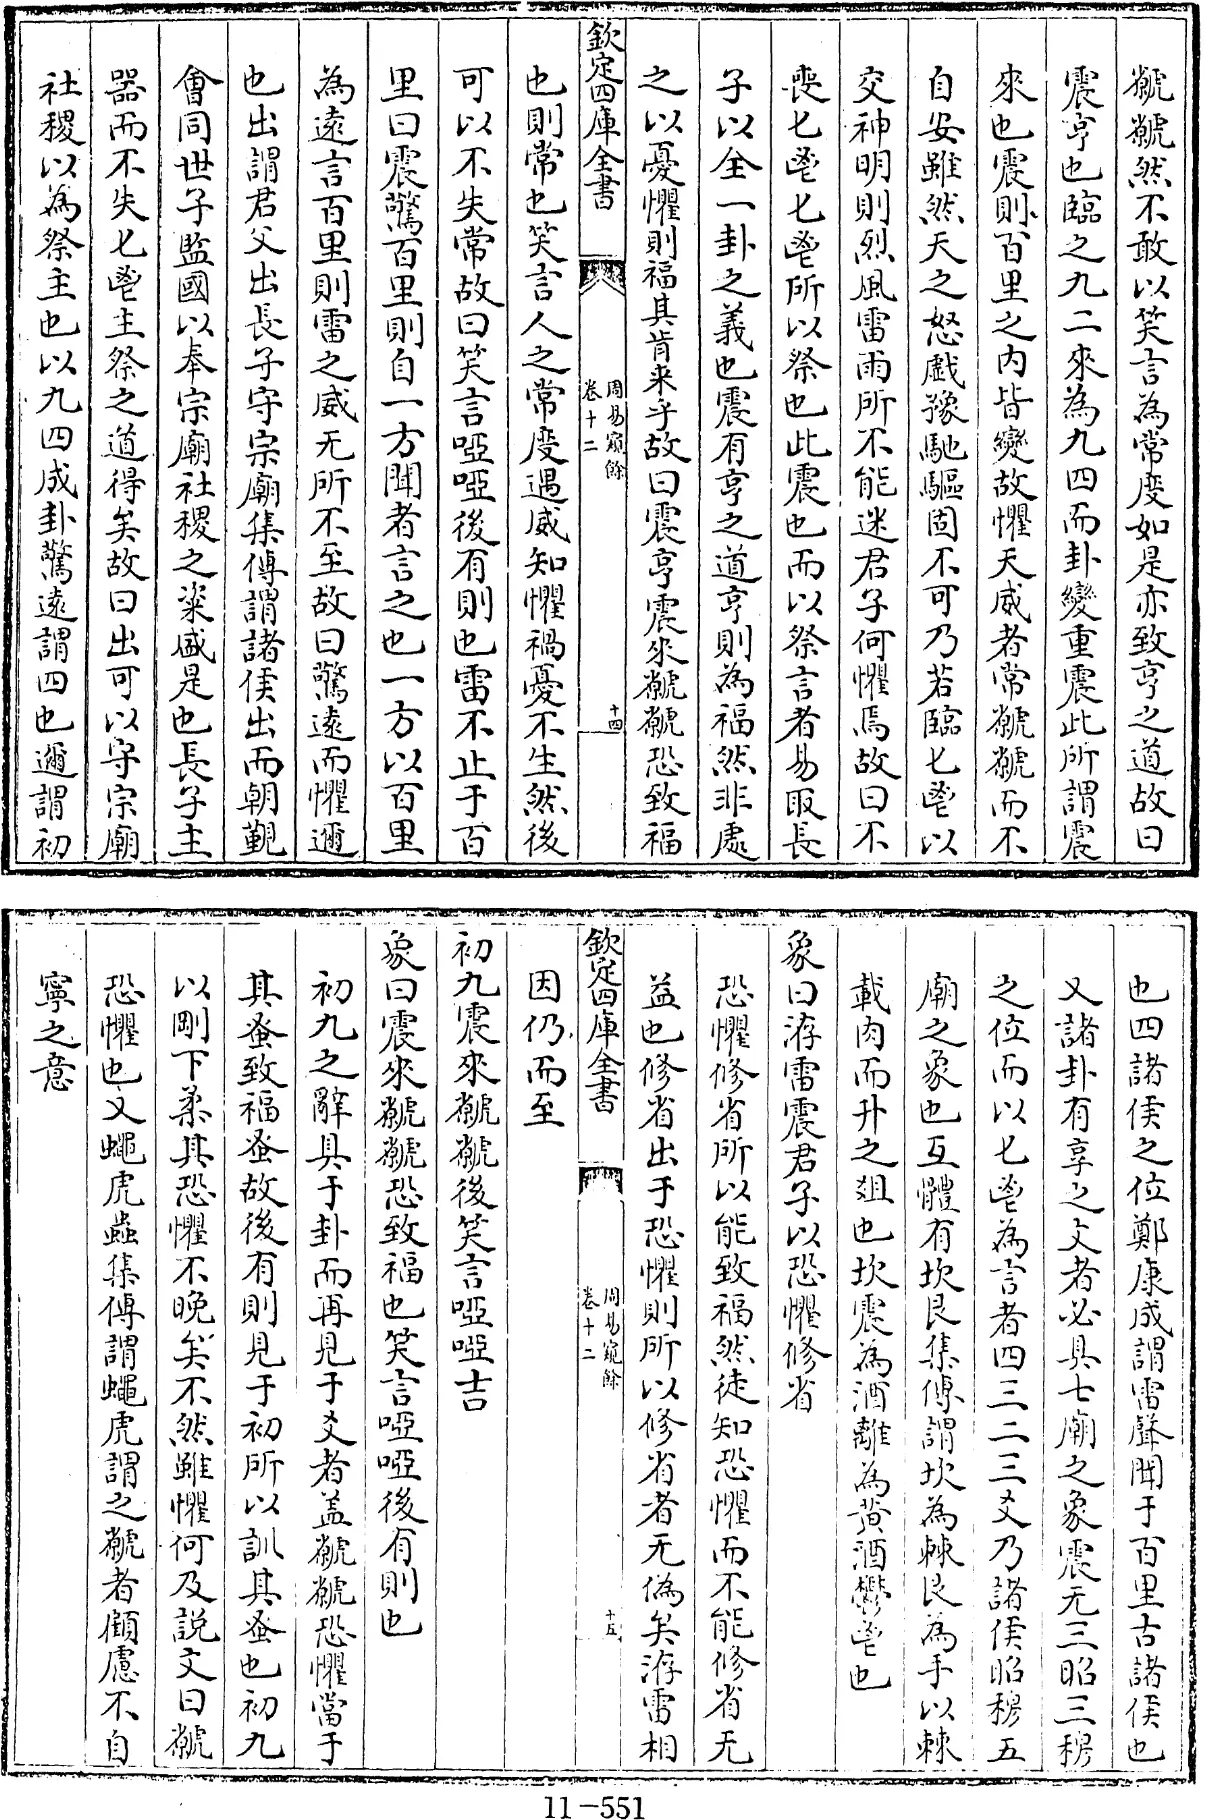 虩虩然不敢以笑言為常度如是亦致亨之道故曰
震亨也臨之九二來為九四而卦變重震此所謂震
來也震則百里之内皆變故懼天威者常虩虩而不
自安雖然天之怒戲豫馳驅固不可乃若臨匕鬯以
交神明則烈風雷雨所不能迷君子何懼焉故曰不
喪匕鬯匕鬯所以祭也此震也而以祭言者易取長
子以全一卦之義也震有亨之道亨則為福然非處
之以憂懼則福其肯来乎故曰震亨震來虩虩恐致福
欽定四庫全書
周易窺餘
卷十二
十四
也則常也笑言人之常度遇威知懼禍憂不生然後
可以不失常故曰笑言啞啞後有則也雷不止于百
里曰震驚百里則自一方聞者言之也一方以百里
為遠言百里則雷之威无所不至故曰驚遠而懼邇
也出謂君父出長子守宗廟集傅謂諸侯出而朝覲
會同世子監國以奉宗廟社稷之粢盛是也長子主
器而不失匕鬯主祭之道得矣故曰出可以守宗廟
社稷以為祭主也以九四成卦驚遠謂四也邇謂初
也四諸侯之位鄭康成謂雷聲聞于百里古諸侯也
又諸卦有享之文者必具七廟之象震无三昭三穆
之位而以匕鬯為言者四三二三爻乃諸侯昭穆五
廟之象也互體有坎艮集傅謂坎為棘艮為手以棘
載肉而升之爼也坎震為酒離為黄酒鬱鬯也
象曰洊雷震君子以恐懼修省
恐懼修省所以能致福然徒知恐懼而不能修省无
益也修省出于恐懼則所以修省者无偽矣洊雷相
欽定四庫全書
周易窺餘
卷十二
十五
因仍而至
初九震來虩虩後笑言啞啞吉
象曰震來虩虩恐致福也笑言啞啞後有則也
初九之辭具于卦而再見于爻者盖虩虩恐懼當于
其蚤致福蚤故後有則見于初所以訓其蚤也初九
以剛下柔其恐懼不晚矣不然雖懼何及説文曰虩
恐懼也又蠅虎蟲集傅謂蠅虎謂之虩者顧慮不自
寧之意
11-551